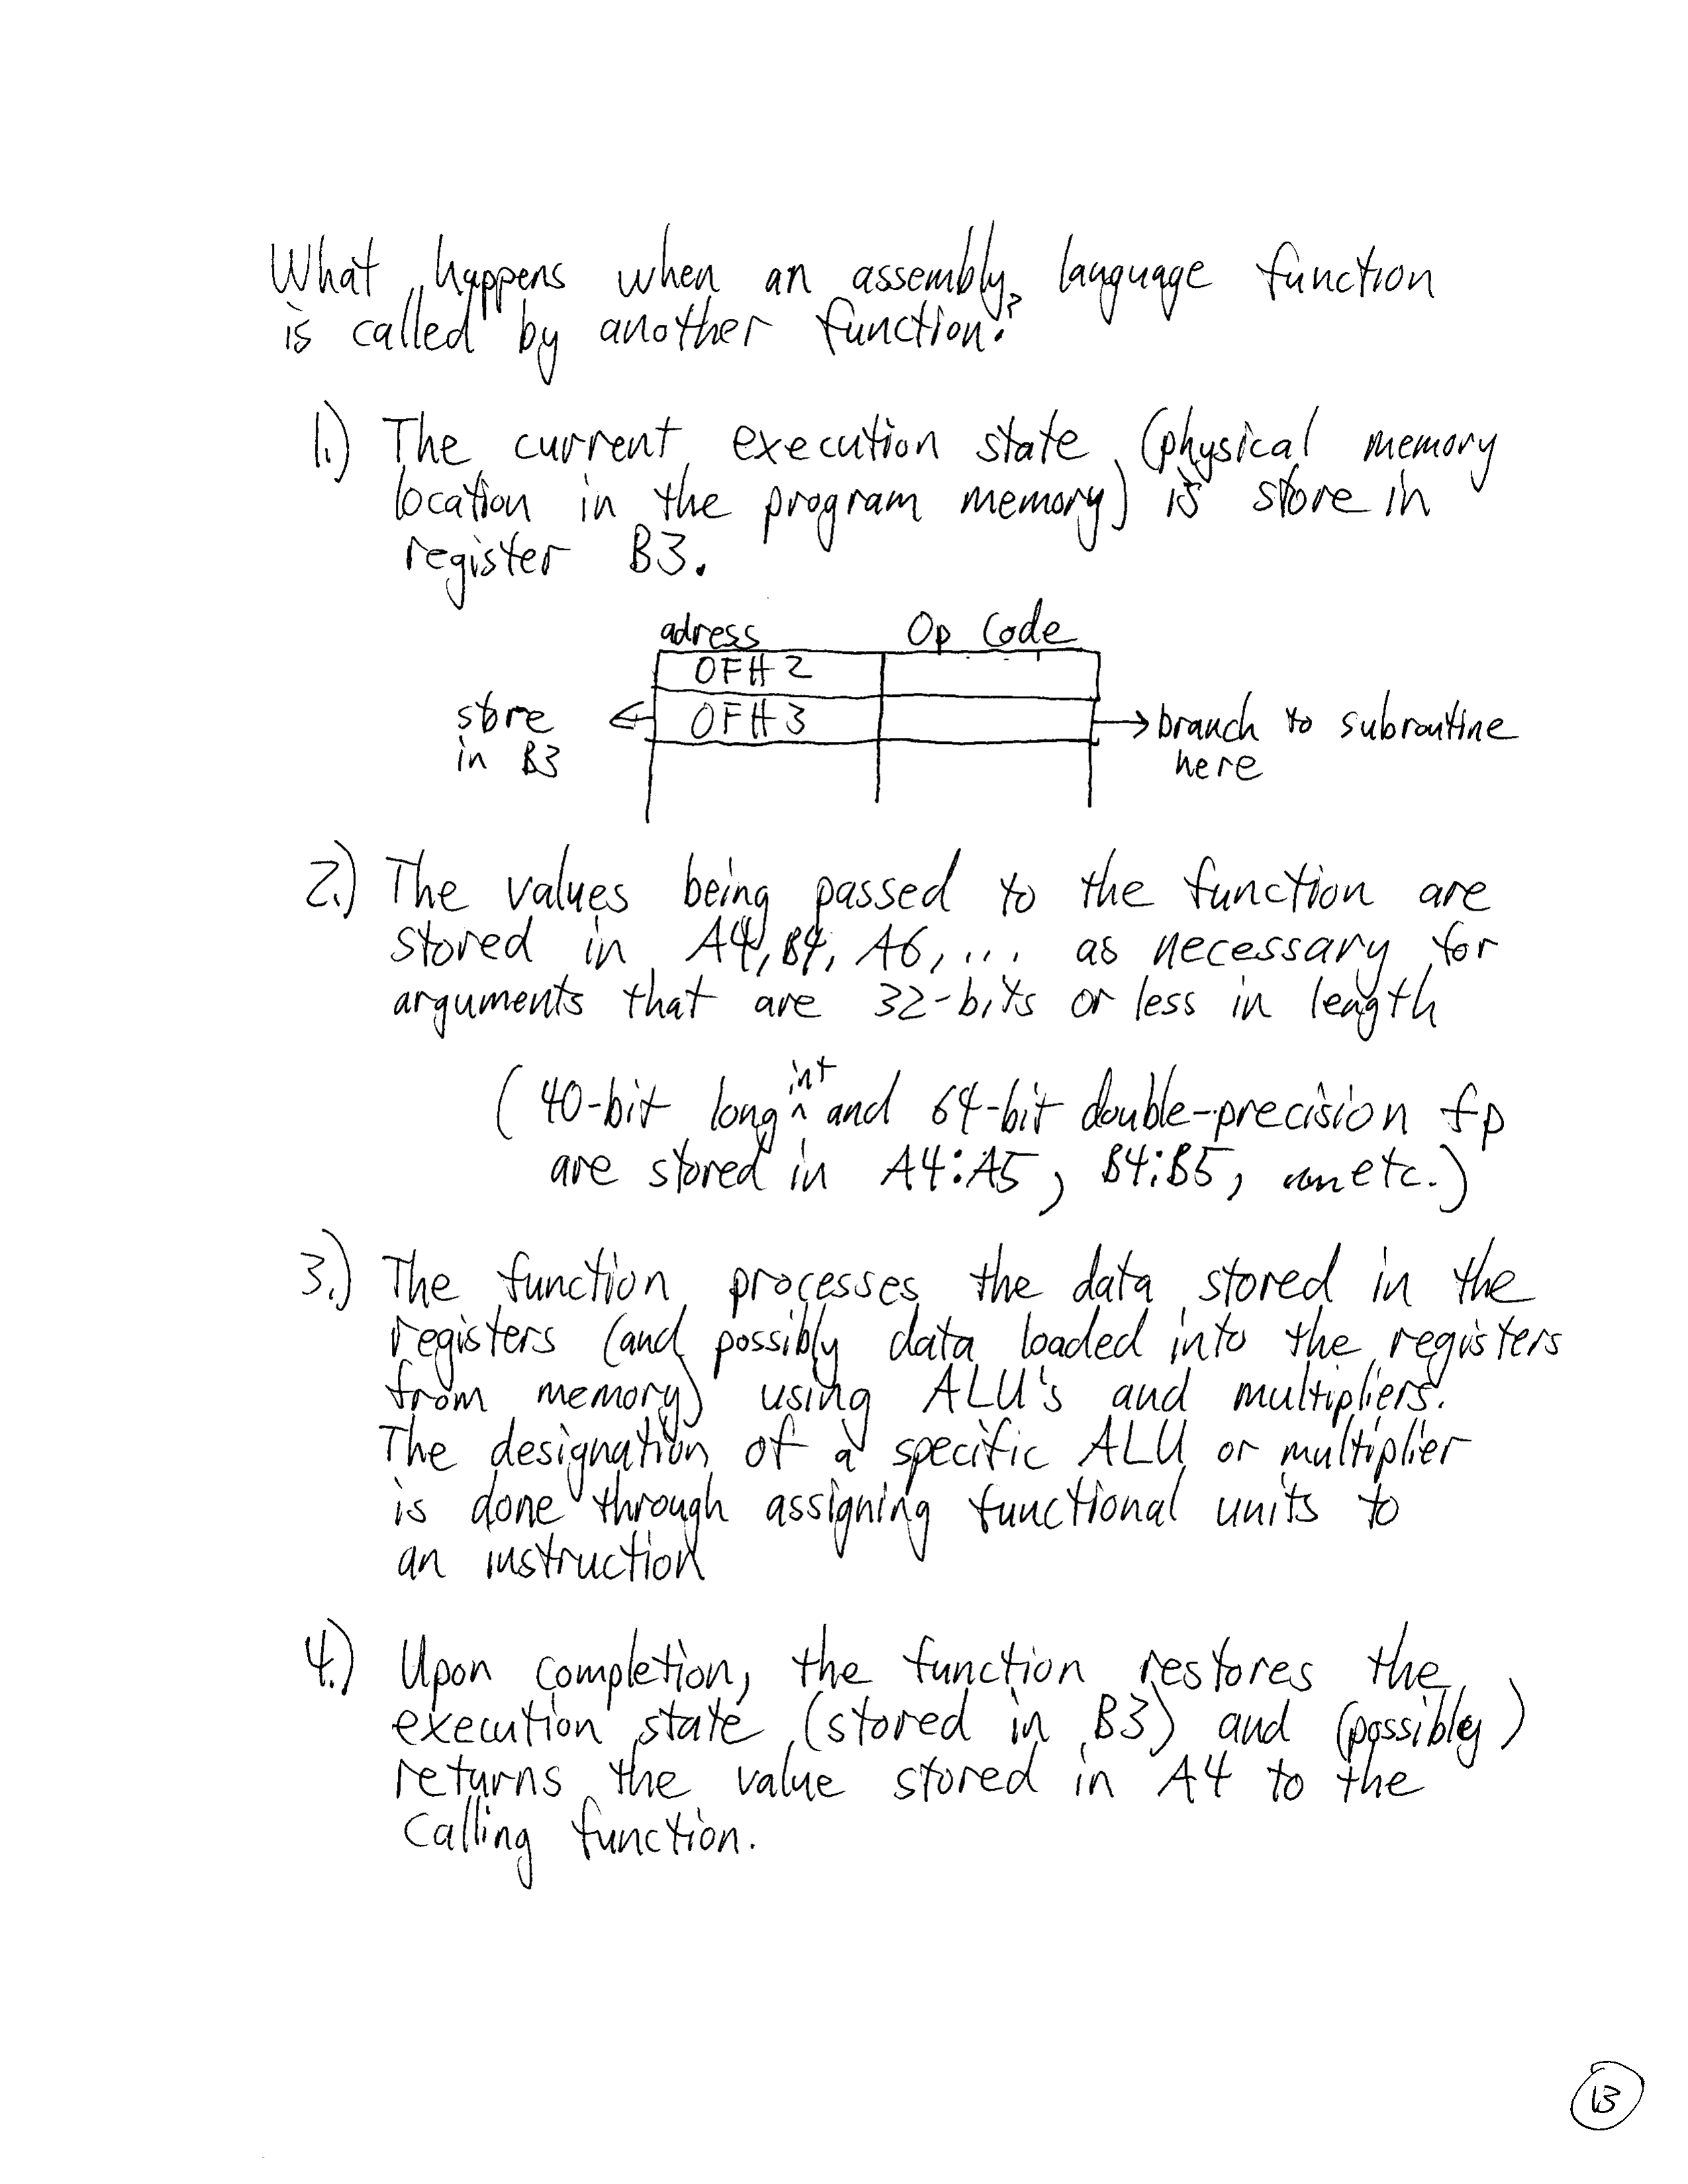 What happens when an assembly language function
is called by another function?
1.) The current execution state (physical memory
location in the program memory) is store in
register B3.
adress Op Code
OFH 2
store ← OFH 3 → branch to subroutine
in B3 here
2.) The values being passed to the function are
stored in A4, B4, A6, ... as necessary for
arguments that are 32-bits or less in length
(40-bit long int and 64-bit double-precision fp
are stored in A4:A5, B4:B5, etc.)
3.) The function processes the data stored in the
registers (and possibly data loaded into the registers
from memory) using ALU's and multipliers.
The designation of a specific ALU or multiplier
is done through assigning functional units to
an instruction
4.) Upon completion, the function restores the
execution state (stored in B3) and (possibly)
returns the value stored in A4 to the
calling function.
13